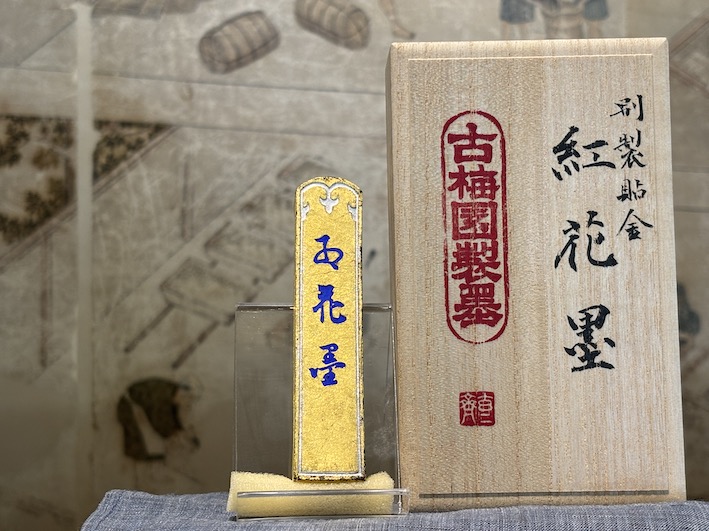 別製貼金
紅花墨
古梅園製墨
紅花墨